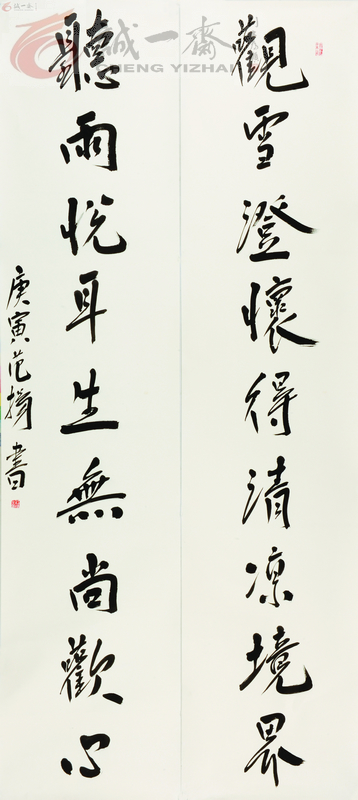 觀雪澄懷得清凉境界
聽雨悦耳生無尚歡心
庚寅范揖書
誠一齋
CHENG YIZHAI